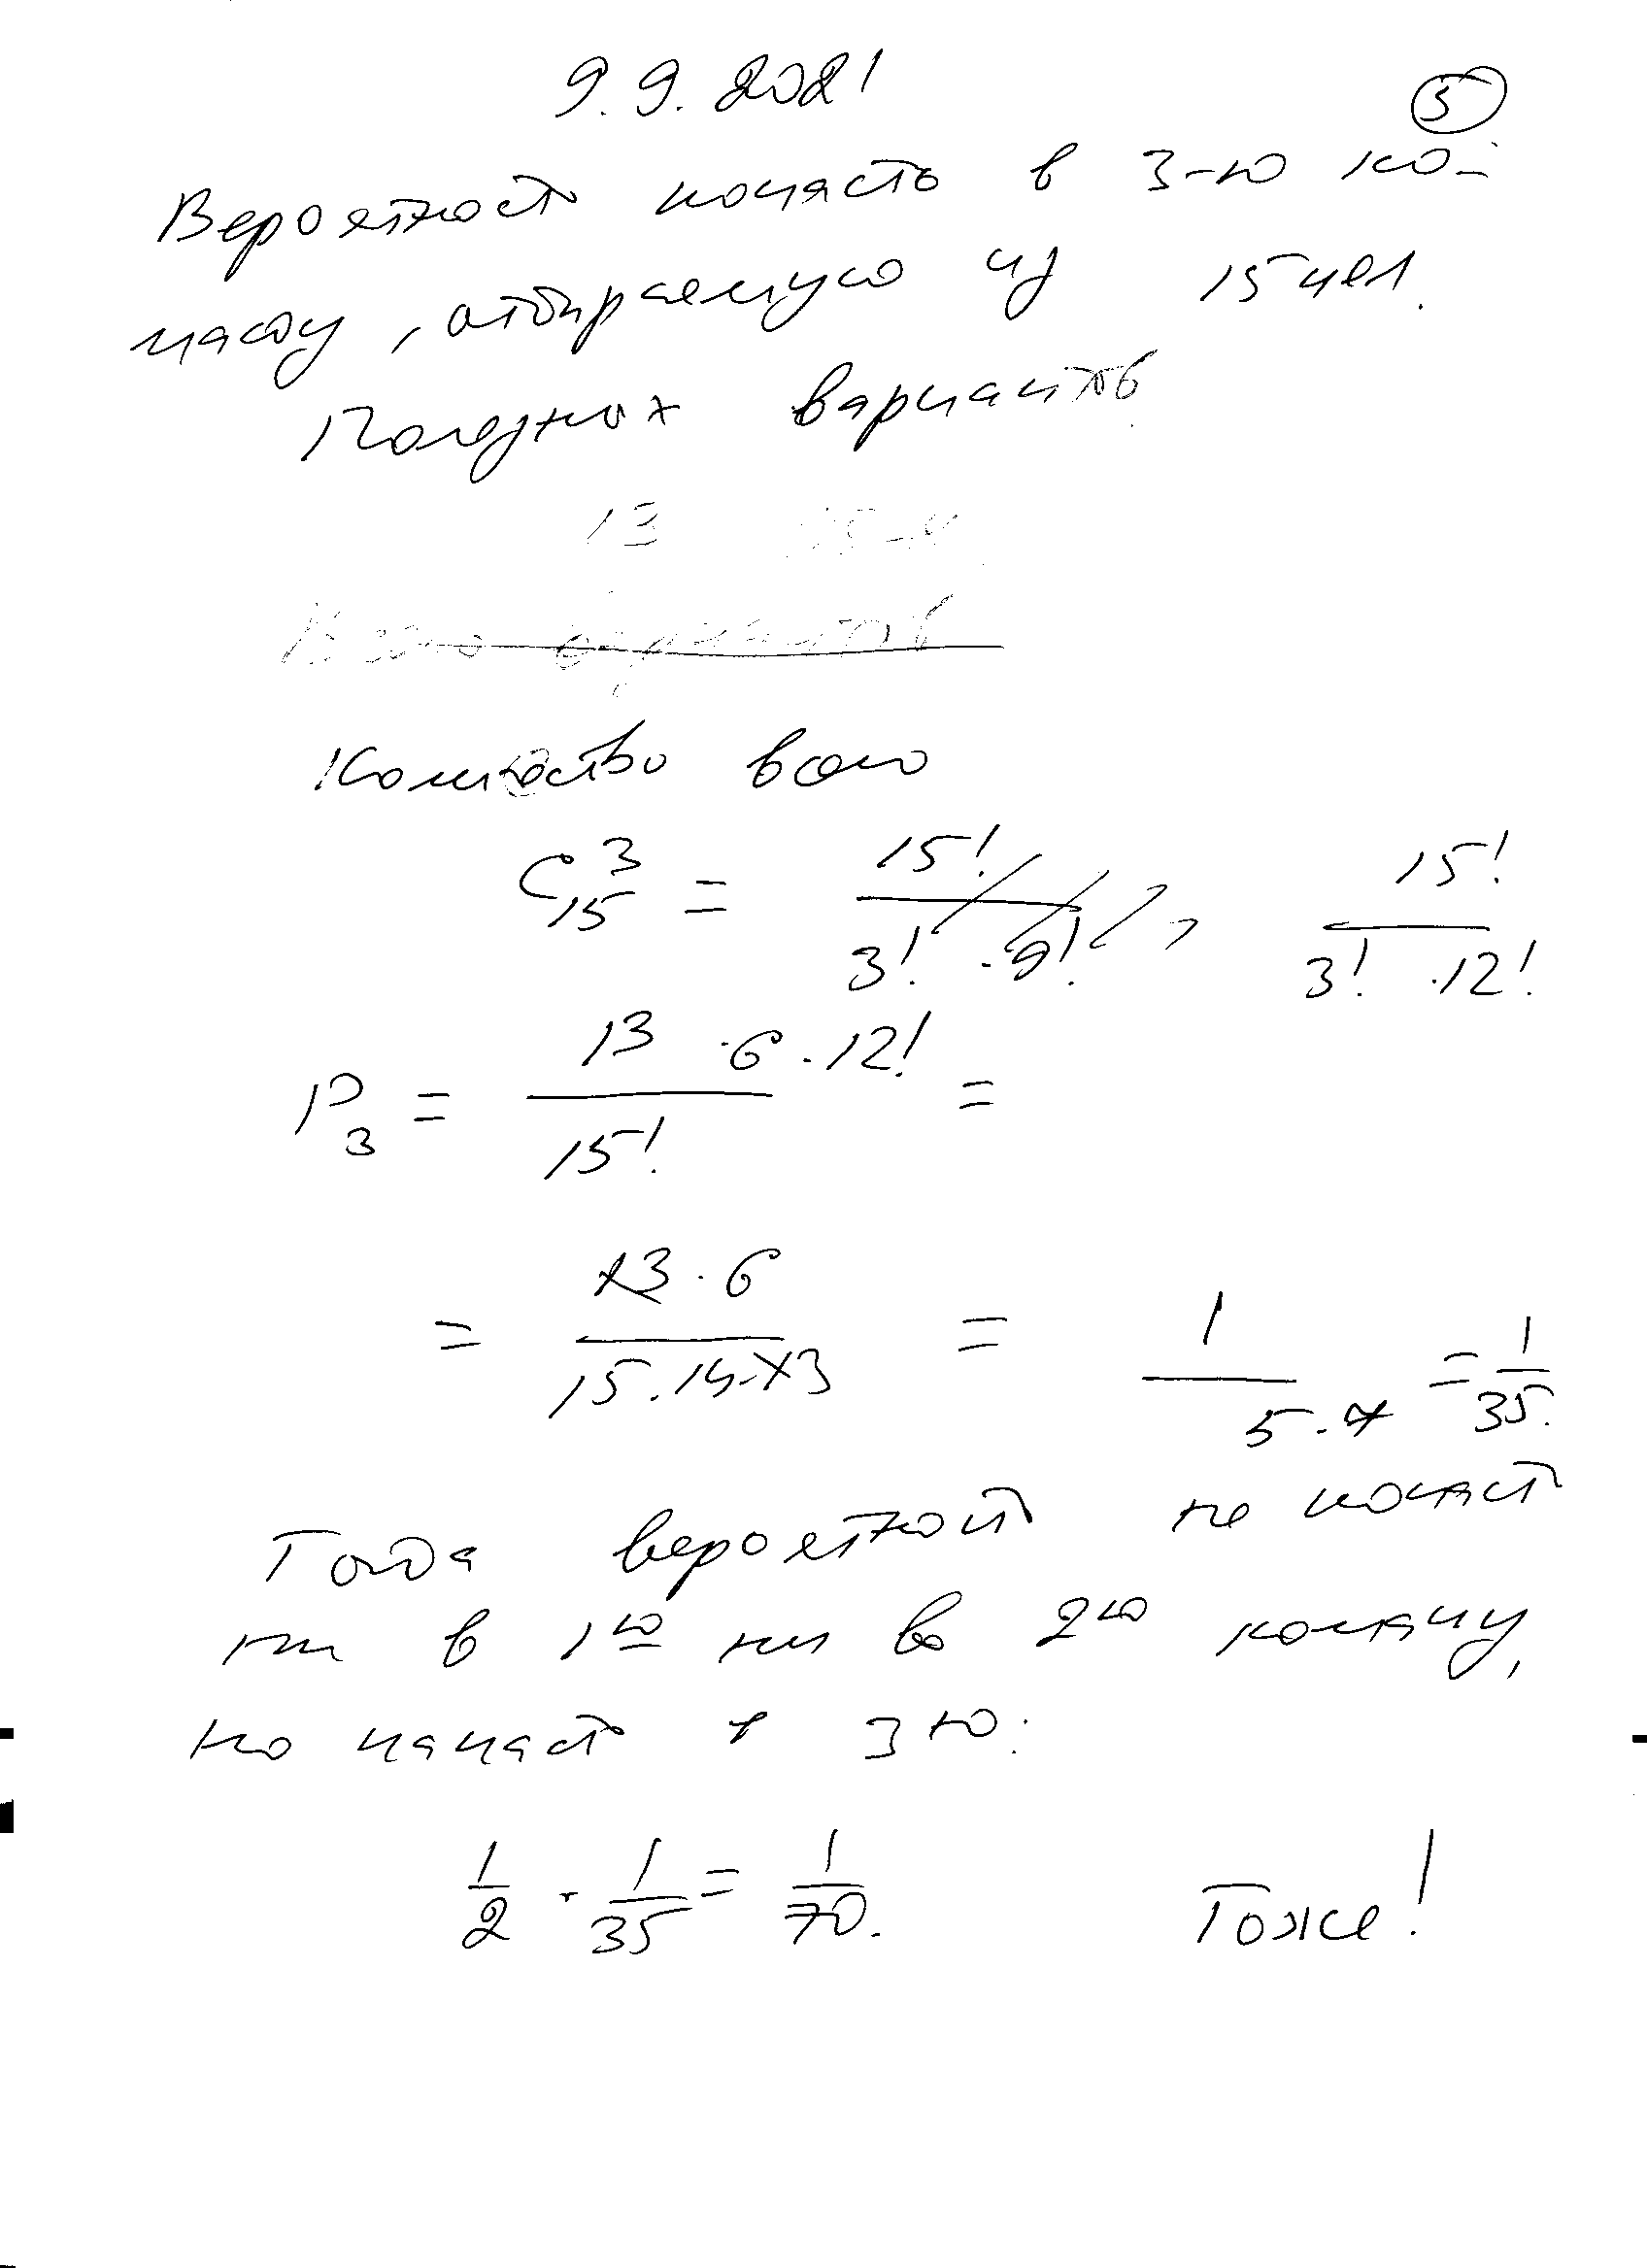 9.9.2021
5
Вероятность попасть в 3-ю ко-
манду, отбираемую из 15 чел.
Полезных вариантов
13
Всего вариантов
Количество всего
C₁₅³ = 15! / 3! · 9! 15! / 3! · 12!
P₃ = 13 · 6 · 12! / 15! =
= 13 · 6 / 15 · 14 · 13 = 1 / 5 · 7 = 1/35.
Тогда вероятность не попасть
ни в 1ю ни во 2ю команду,
но попасть в 3ю:
1/2 · 1/35 = 1/70. Тоже!